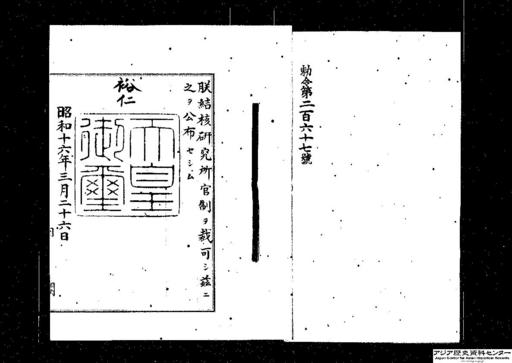 勅令第二百六十七號
朕結核研究所官制ヲ裁可シ茲ニ
之ヲ公布セシム
裕仁
天皇御璽
昭和十六年三月二十六日
アジア歴史資料センター
Japan Center for Asian Historical Records